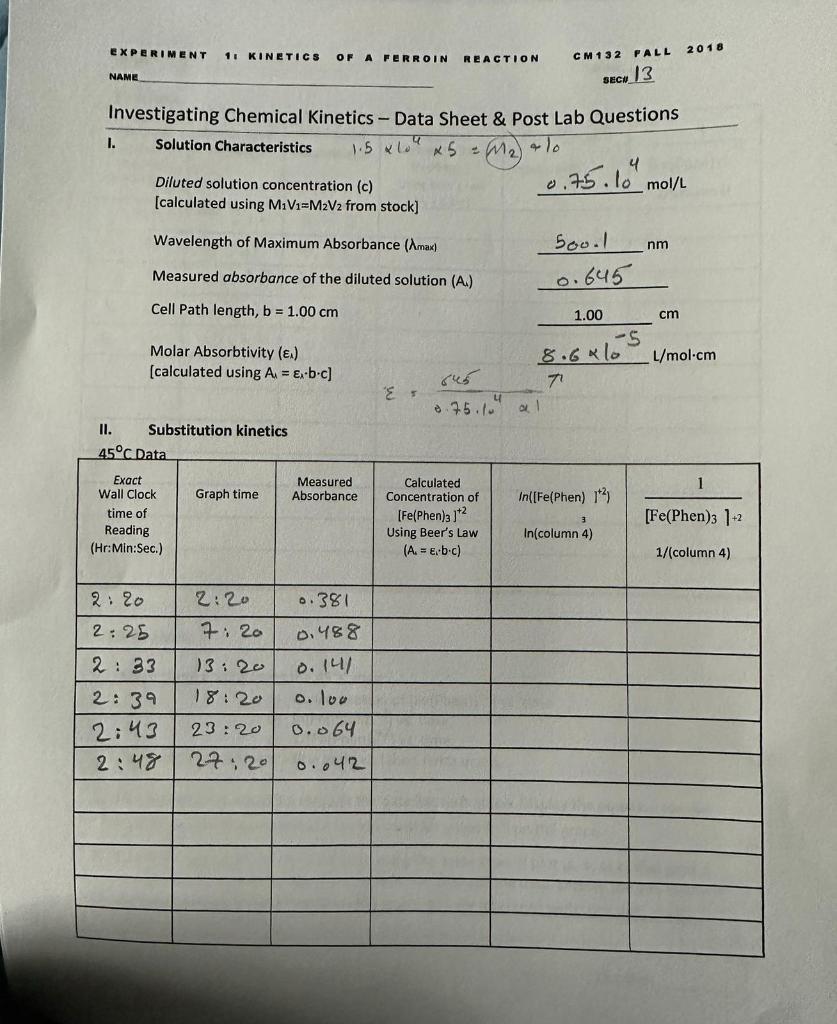 EXPERIMENT 1: KINETICS OF A FERROIN REACTION CM132 FALL 2018
NAME SEC# 13
Investigating Chemical Kinetics – Data Sheet & Post Lab Questions
I. Solution Characteristics 1.5 x 10⁴ x 5 = M₂ x 10
Diluted solution concentration (c) 0.75.10⁴ mol/L
[calculated using M₁V₁=M₂V₂ from stock]
Wavelength of Maximum Absorbance (λmax) 500.1 nm
Measured absorbance of the diluted solution (A.) 0.645
Cell Path length, b = 1.00 cm 1.00 cm
Molar Absorbtivity (ελ) 8.6 x 10⁻⁵ L/mol·cm
[calculated using Aλ = ελ·b·c]
ε = 645
0.75.10⁴ x 1
II. Substitution kinetics
45°C Data
Exact Wall Clock time of Reading (Hr:Min:Sec.)
Graph time
Measured Absorbance
Calculated Concentration of [Fe(Phen)₃]⁺² Using Beer's Law (A. = ε.·b·c)
ln([Fe(Phen) ]⁺²) 3 ln(column 4)
1 [Fe(Phen)₃ ]+2 1/(column 4)
2:20 2:20 0.381
2:25 7:20 0.488
2:33 13:20 0.141
2:39 18:20 0.100
2:43 23:20 0.064
2:48 27:20 0.042